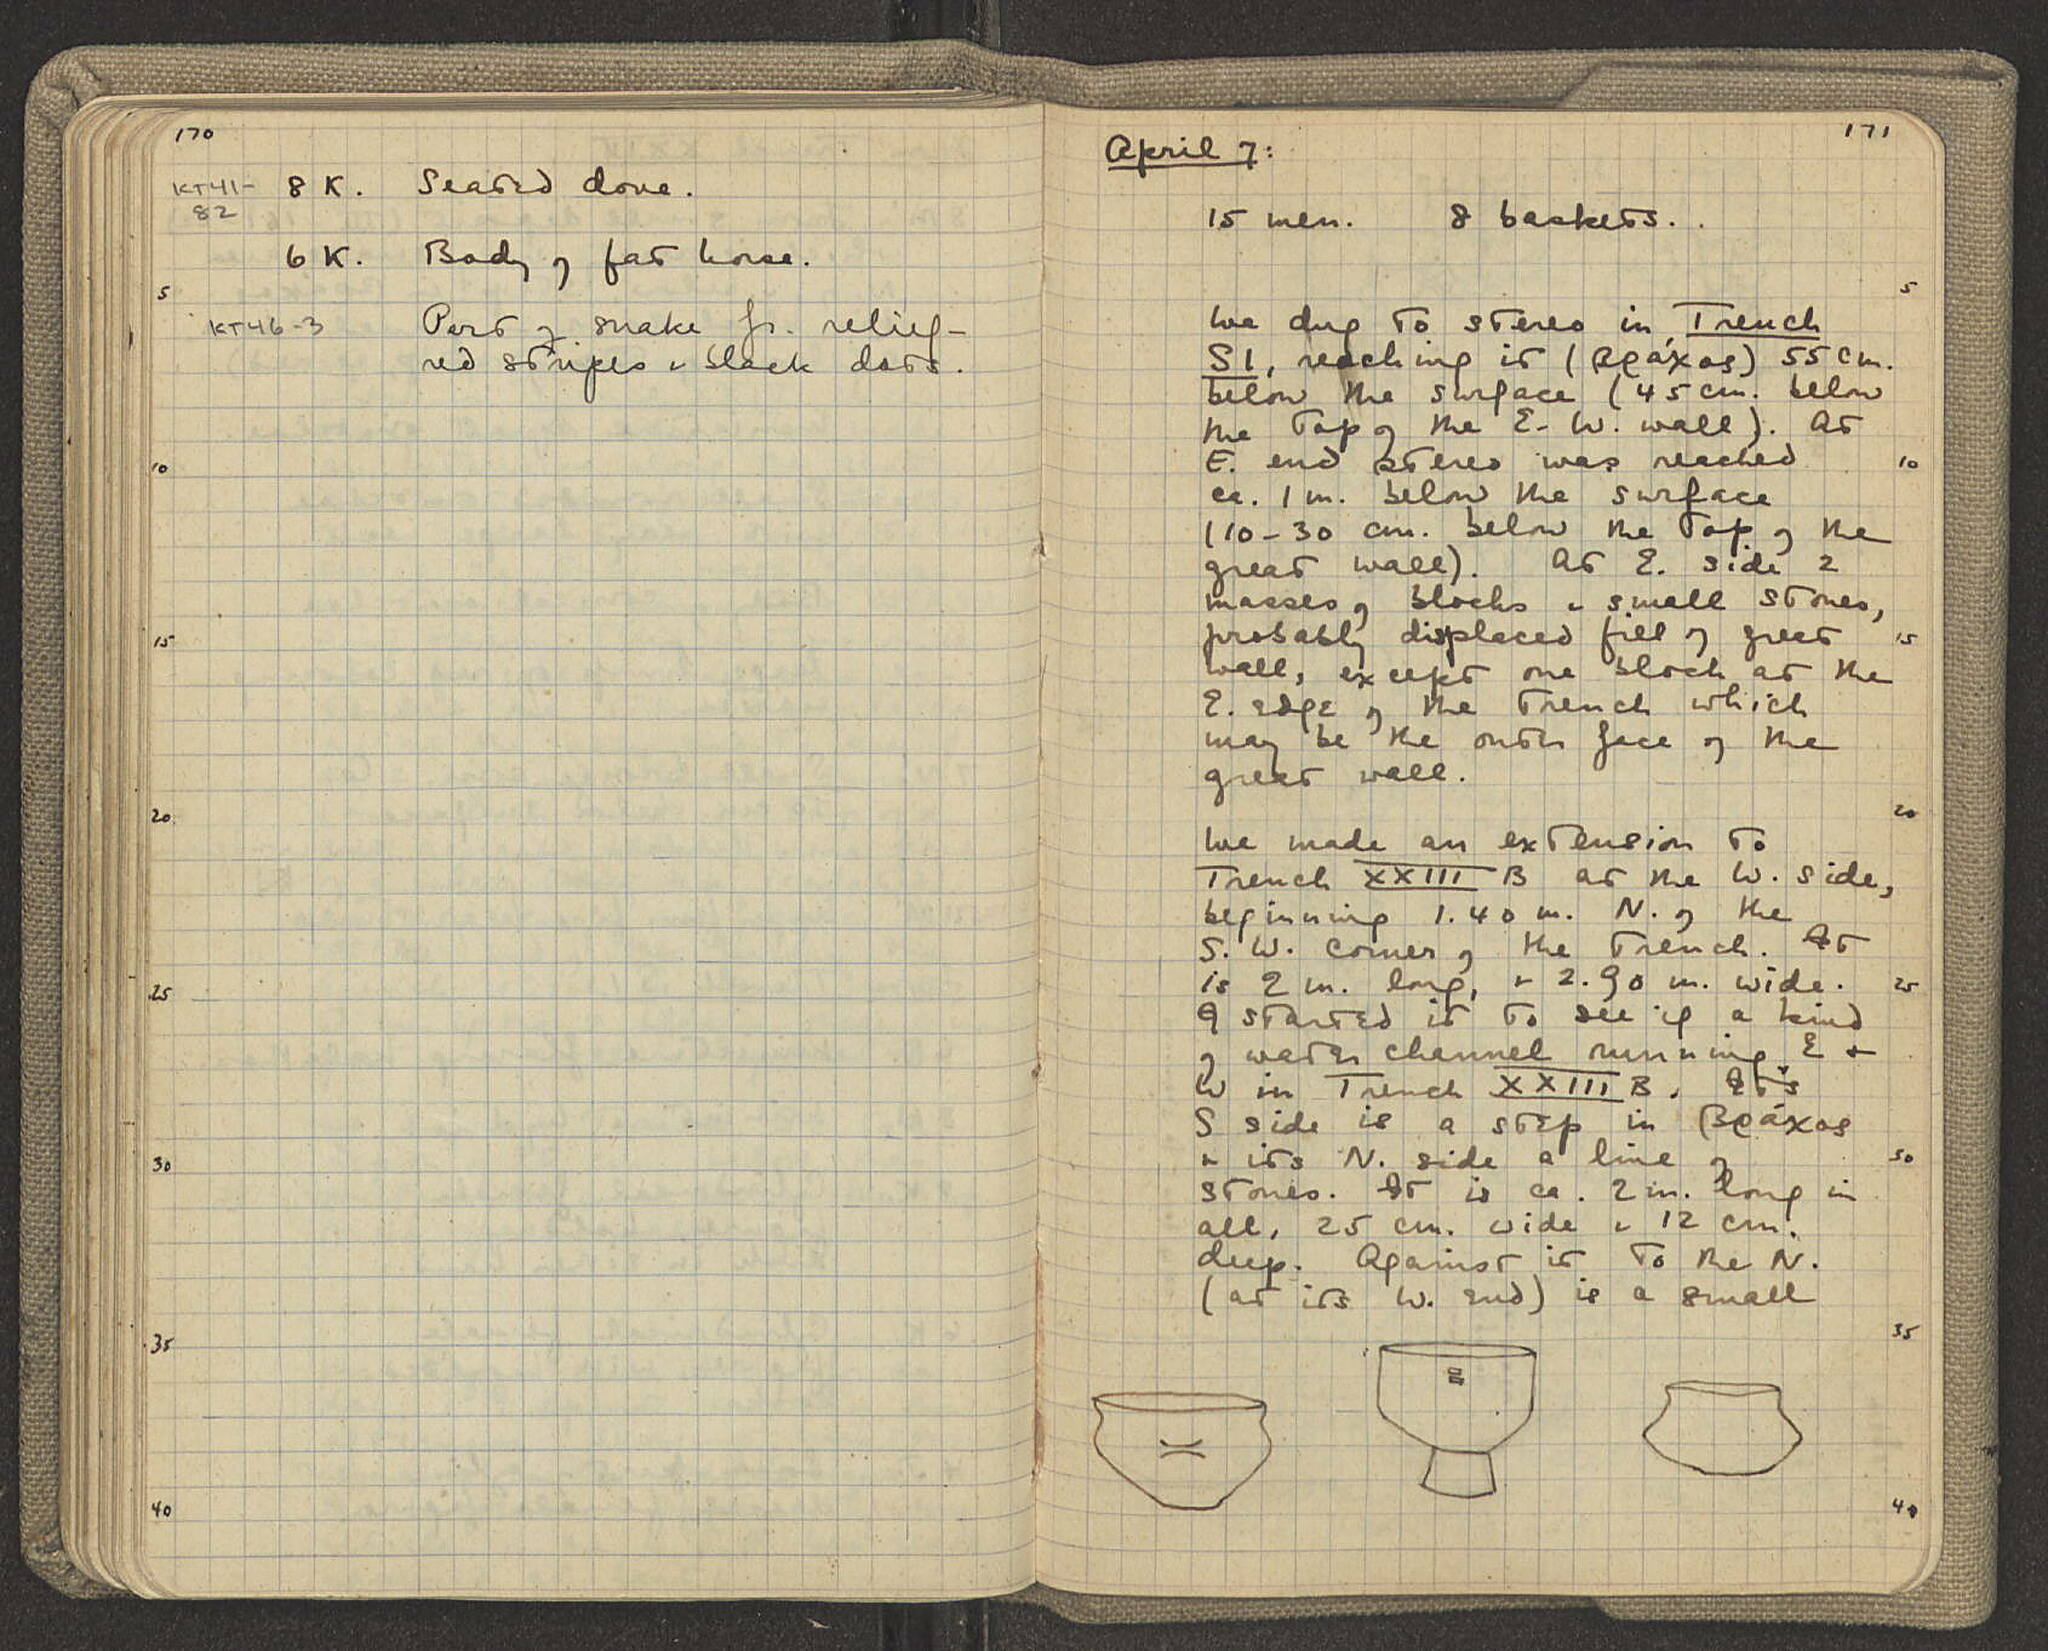 170
KT41-
82
8 K. Seated dove.
6 K. Body of fat horse.
5
KT46-3
Part of snake fr. relief-
red stripes & black dots.
10
15
20
25
30
35
40
171
April 7:
15 men. 8 baskets.
5
We dug to stereo in Trench
S1, reaching it (βράχος) 55 cm.
below the surface (45 cm. below
the top of the E-W. wall). At
E. end stereo was reached 10
ca. 1 m. below the surface
(10-30 cm. below the top of the
great wall). At E. side 2
masses of blocks & small stones,
probably displaced fill of great 15
wall, except one block at the
E. edge of the trench which
may be the outer face of the
great wall.
20
We made an extension to
Trench XXIII B at the W. side,
beginning 1.40 m. N. of the
S.W. corner of the trench. It
is 2 m. long, & 2.90 m. wide. 25
I started it to see if a kind
of water channel running E &
W in Trench XXIII B. Its
S side is a step in βράχος
& its N. side a line of 30
stones. It is ca. 2 m. long in
all, 25 cm. wide & 12 cm.
deep. Against it to the N.
(at its W. end) is a small
35
40